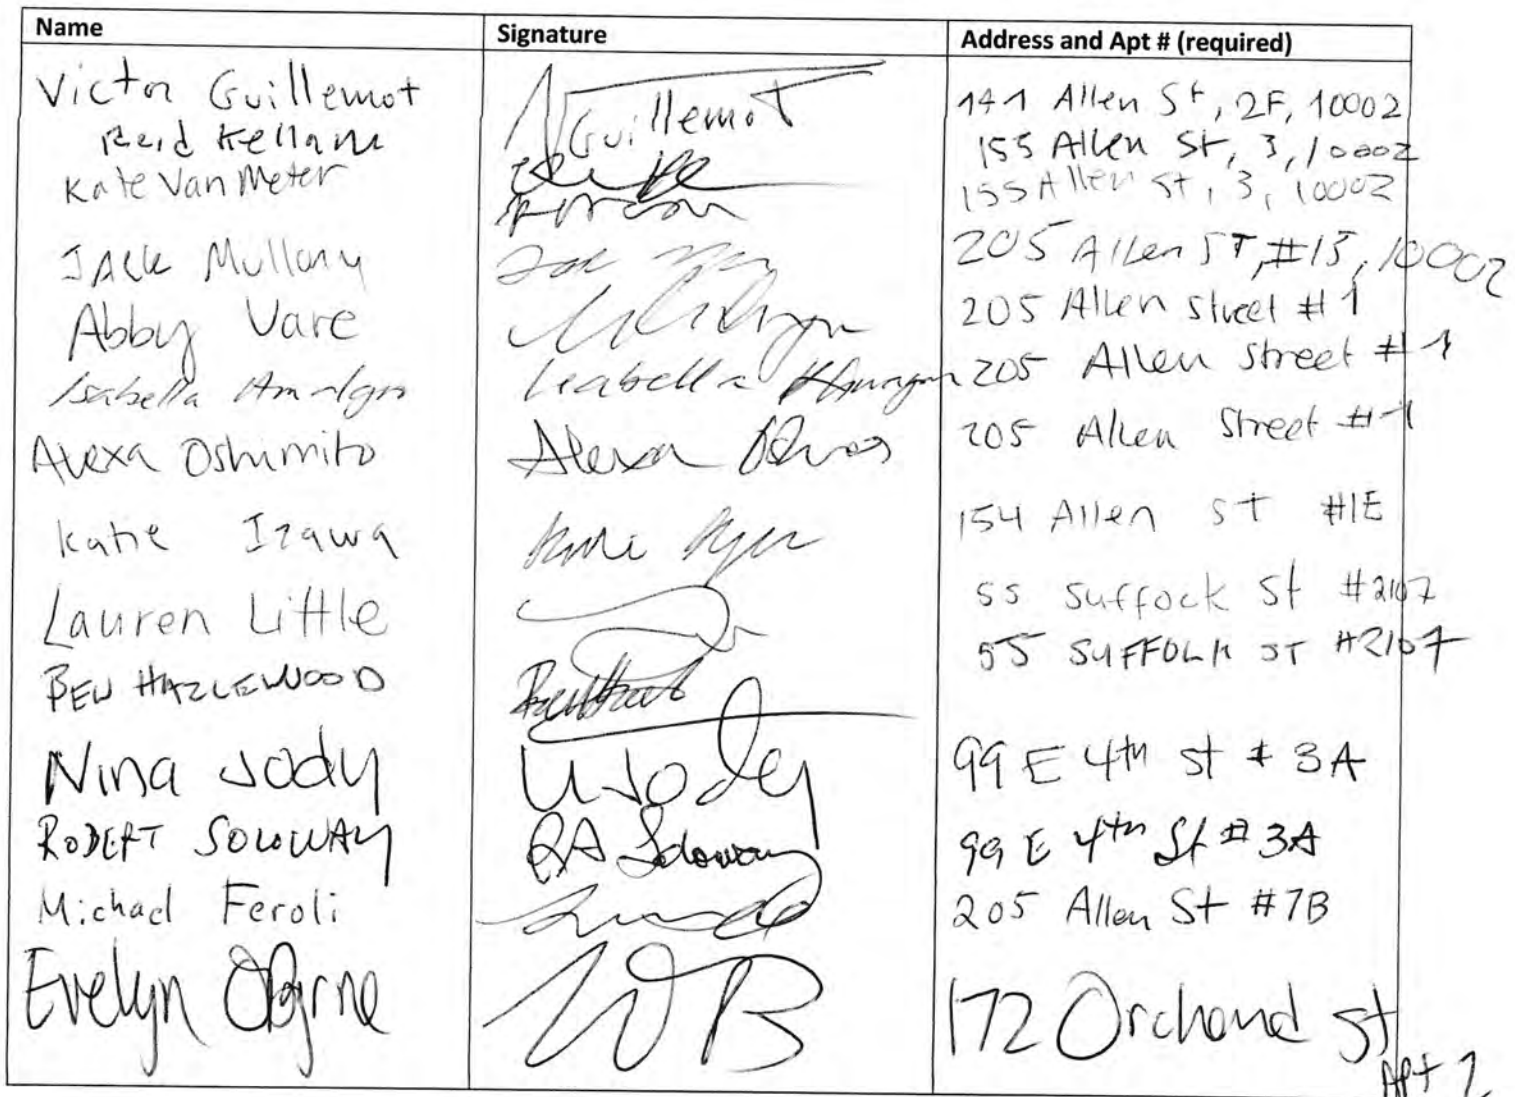 Name Signature Address and Apt # (required)
Victor Guillemot Guillemot 141 Allen St, 2F, 10002
Reid Kellam 155 Allen St, 3, 10002
Kate Van Meter 155 Allen St, 3, 10002
JACK Mullany 205 Allen ST, #13, 10002
Abby Vare 205 Allen Street #1
Isabella Isabella 205 Allen Street #1
Alexa Oshimito Alexa 205 Allen Street #1
Katie Izawa 154 Allen St #1E
Lauren Little 55 Suffock St #2107
BEN HAZLEWOOD 55 SUFFOLK ST #2107
Nina Jody N Jody 99 E 4th St # 3A
ROBERT SOLOWAY RA Soloway 99 E 4th St # 3A
Michael Feroli 205 Allen St #7B
Evelyn OByrne 172 Orchard St
Apt 2